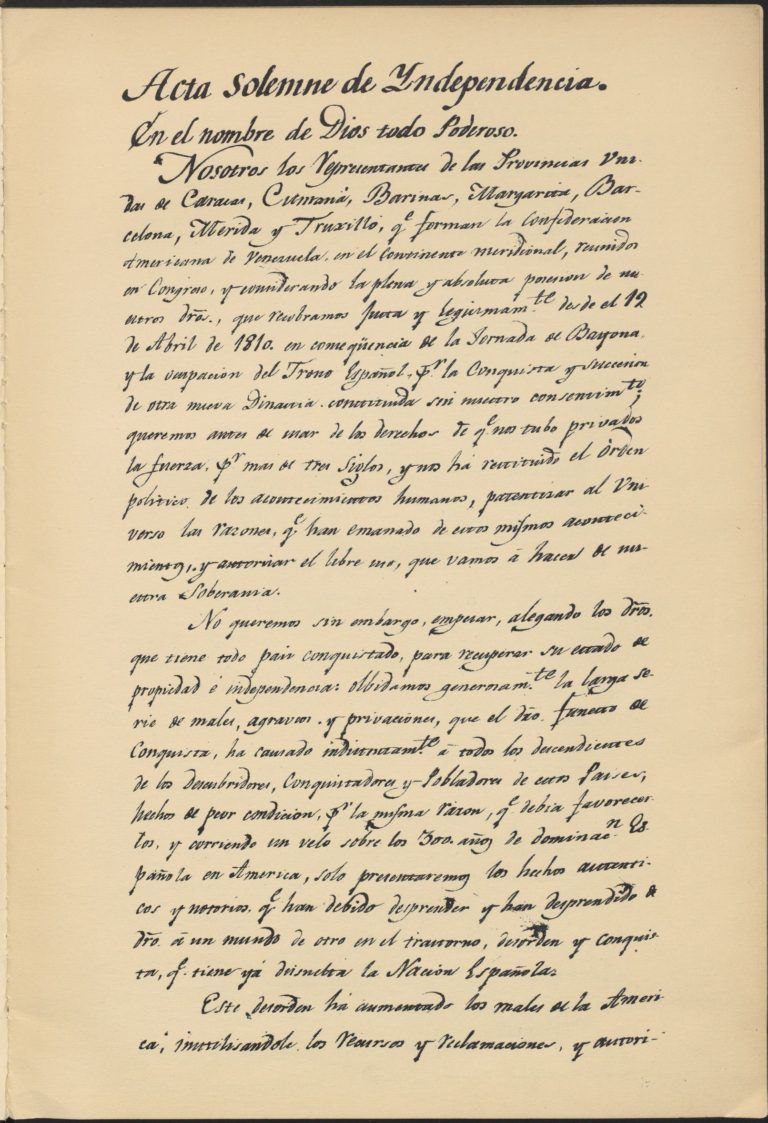 Acta Solemne de Yndependencia.
En el nombre de Dios todo Poderoso.
Nosotros los Representantes de las Provincias Uni-
das de Caracas, Cumaná, Barinas, Margarita, Bar-
celona, Merida y Truxillo, q.e forman la Confederacion
Americana de Venezuela, en el Continente meridional, reunidos
en Congreso, y considerando la plena y absoluta posesion de nu-
estros dros., que recobramos justa y legitimam.te desde el 19
de Abril de 1810. en conseqüencia de la Jornada de Bayona,
y la ocupacion del Trono Español, pr. la Conquista y succesion
de otra nueva Dinastia, constituida sin nuestro consentim.to,
queremos antes de usar de los derechos de q.e nos tubo privados
la fuerza, pr. mas de tres siglos, y nos há restituido el Orden
politico de los acontecimientos humanos, patentizar al Uni-
verso las razones, q.e han emanado de estos mismos aconteci-
mientos, y autorizar el libre uso, que vamos á hacer de nu-
estra Soberania.
No queremos sin embargo, empezar, alegando los dros.
que tiene todo pais conquistado, para recuperar su estado de
propiedad é independencia: olbidamos generosam.te la larga se-
rie de males, agravios, y privaciones, que el dro. funesto de
Conquista, ha causado indistintam.te á todos los descendientes
de los Descubridores, Conquistadores y Pobladores de estos Paises,
hechos de peor condicion, pr. la misma razon, q.e debia favorecer-
los, y corriendo un velo sobre los 300. años de dominac.n Es-
pañola en America, solo presentaremos los hechos autenti-
cos y notorios, q.e han debido desprender y han desprendido de
dro. á un mundo de otro en el trastorno, desorden y conquis-
ta, q.e tiene yá disuelta la Nacion Española.
Este desorden há aumentado los males de la Ameri-
ca, inutilisandole los recursos y reclamaciones, y autori-